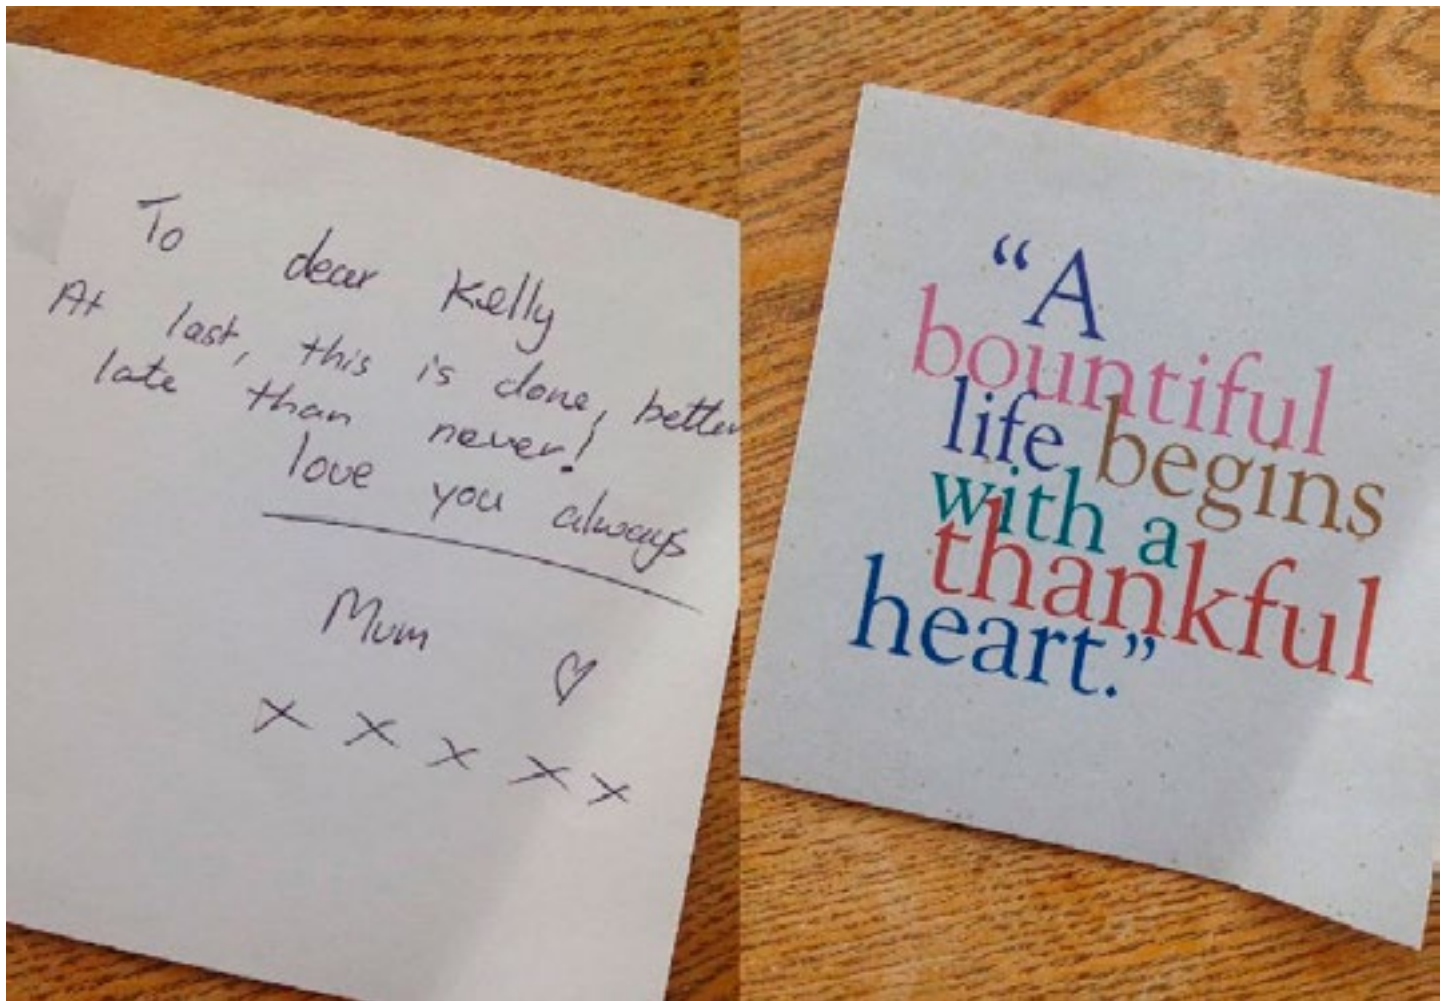 To dear Kelly
At last, this is done, better
late than never!
love you always
Mum
x x x x x
“A
bountiful
life begins
with a
thankful
heart.”